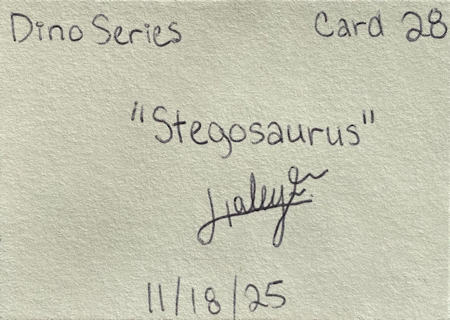 Dino Series Card 28
"Stegosaurus"
11/18/25